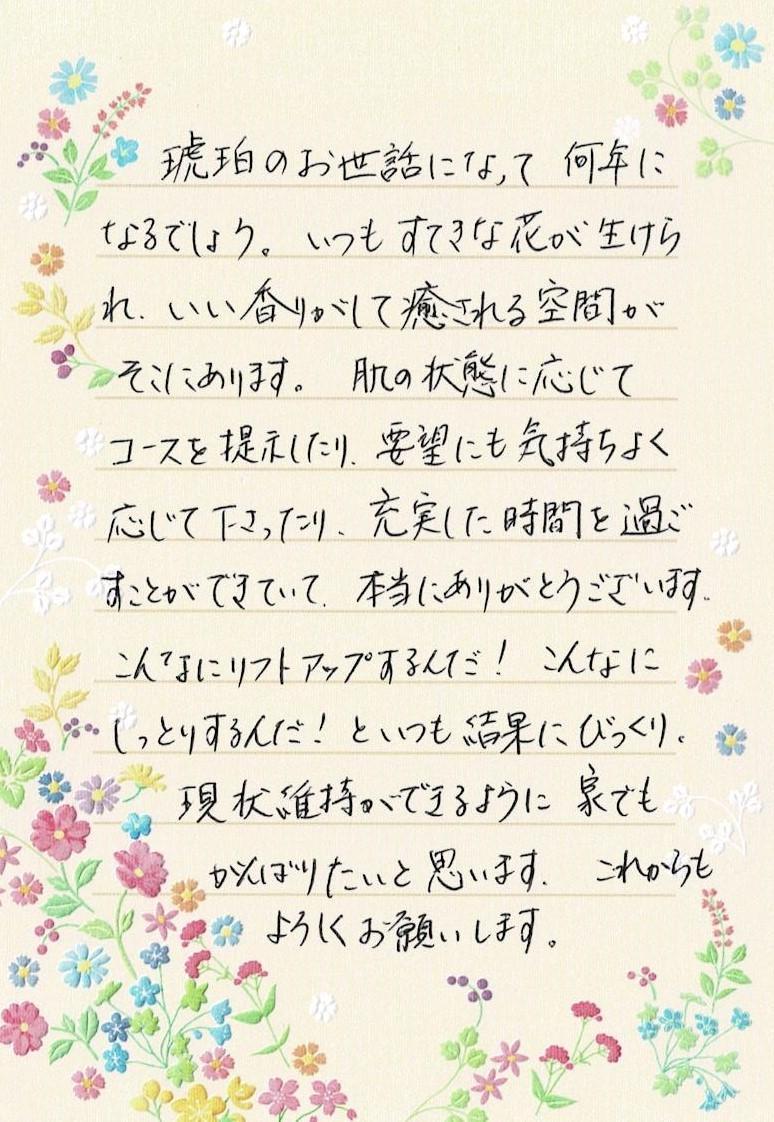 琥珀のお世話になって 何年に
なるでしょう。いつもすてきな花が生けら
れ、いい香りがして癒される空間が
そこにあります。 肌の状態に応じて
コースを提示したり、要望にも気持ちよく
応じて下さったり、充実した時間を過ご
すことができていて、本当にありがとうございます。
こんなにリフトアップするんだ! こんなに
しっとりするんだ!といつも結果にびっくり。
現状維持ができるように 家でも
がんばりたいと思います。 これからも
よろしくお願いします。